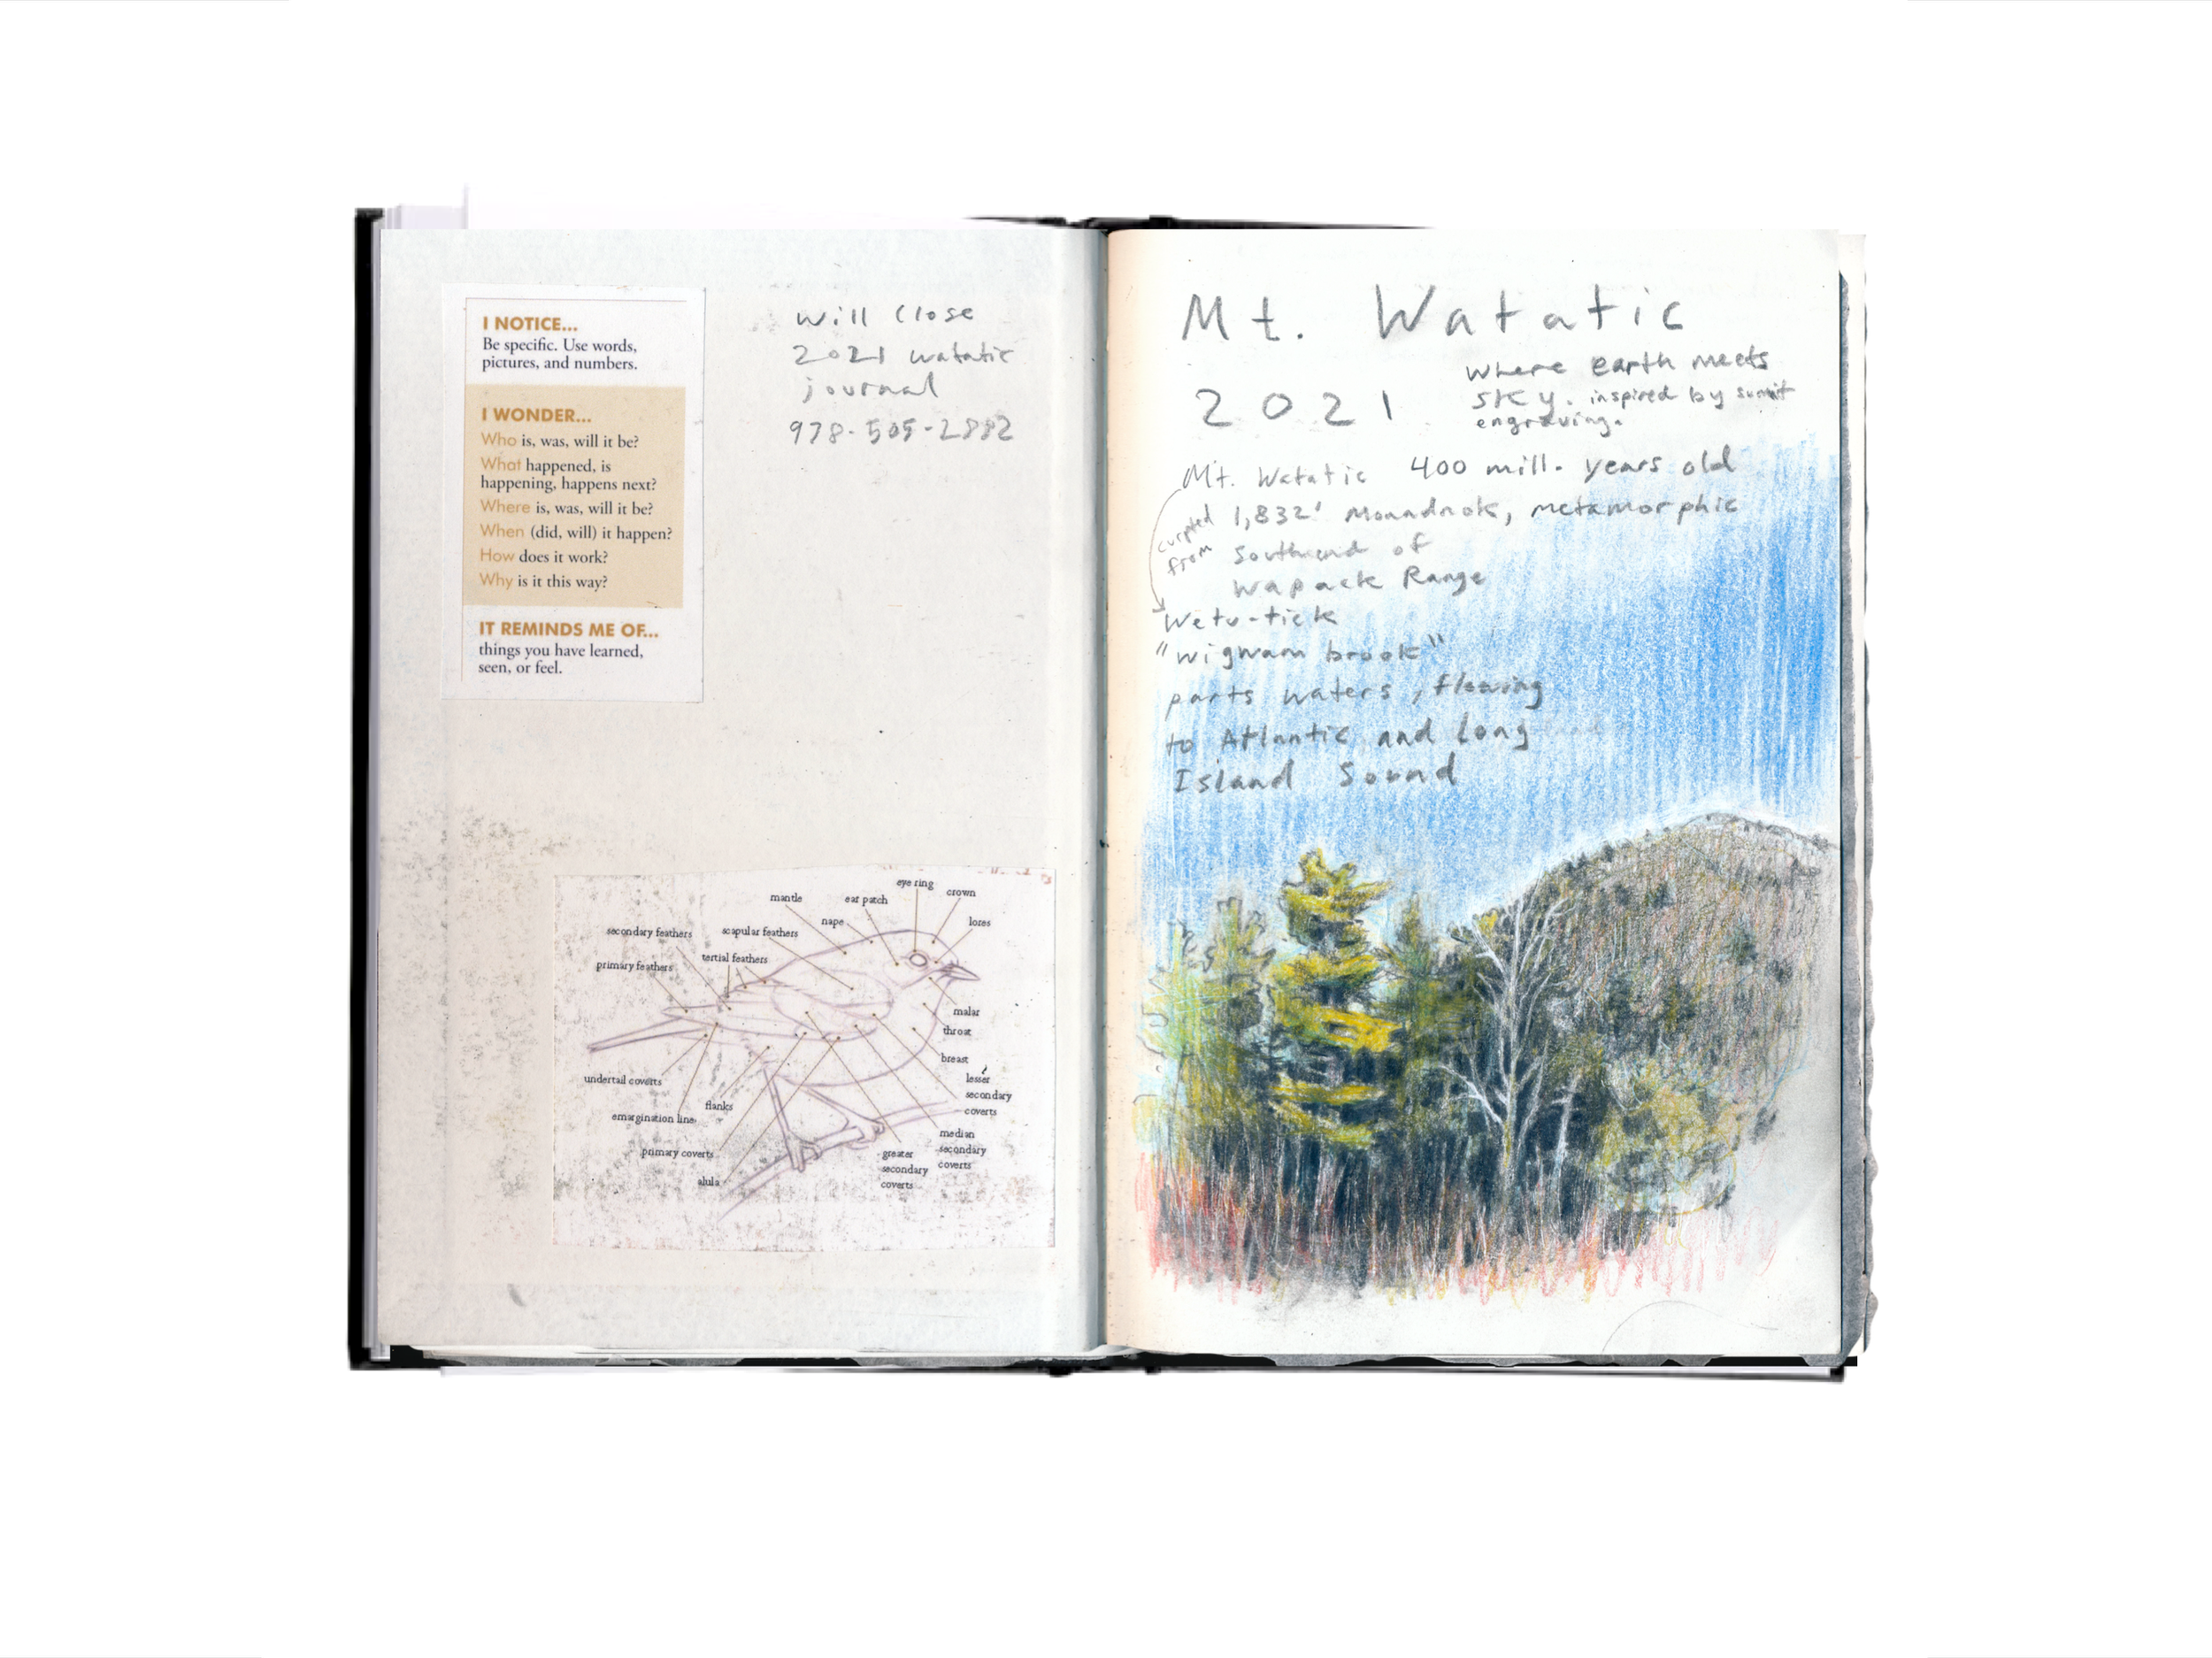 I NOTICE...
Be specific. Use words,
pictures, and numbers.
I WONDER...
Who is, was, will it be?
What happened, is
happening, happens next?
Where is, was, will it be?
When (did, will) it happen?
How does it work?
Why is it this way?
IT REMINDS ME OF...
things you have learned,
seen, or feel.
Will Close
2021 watatic
journal
978-505-2882
eye ring
crown
mantle
ear patch
nape
lores
secondary feathers
scapular feathers
tertial feathers
primary feathers
malar
throat
breast
lesser
secondary
coverts
undertail coverts
flanks
emargination line
median
secondary
coverts
primary coverts
greater
secondary
coverts
alula
Mt. Watatic
2021
where earth meets
sky. inspired by summit
engraving.
Mt. Watatic 400 mill. years old
1,832' Monadnok, metamorphic
from
southend of
Wapack Range
Wetu-tick
"wigwam brook"
parts waters, flowing
to Atlantic and Long
Island Sound